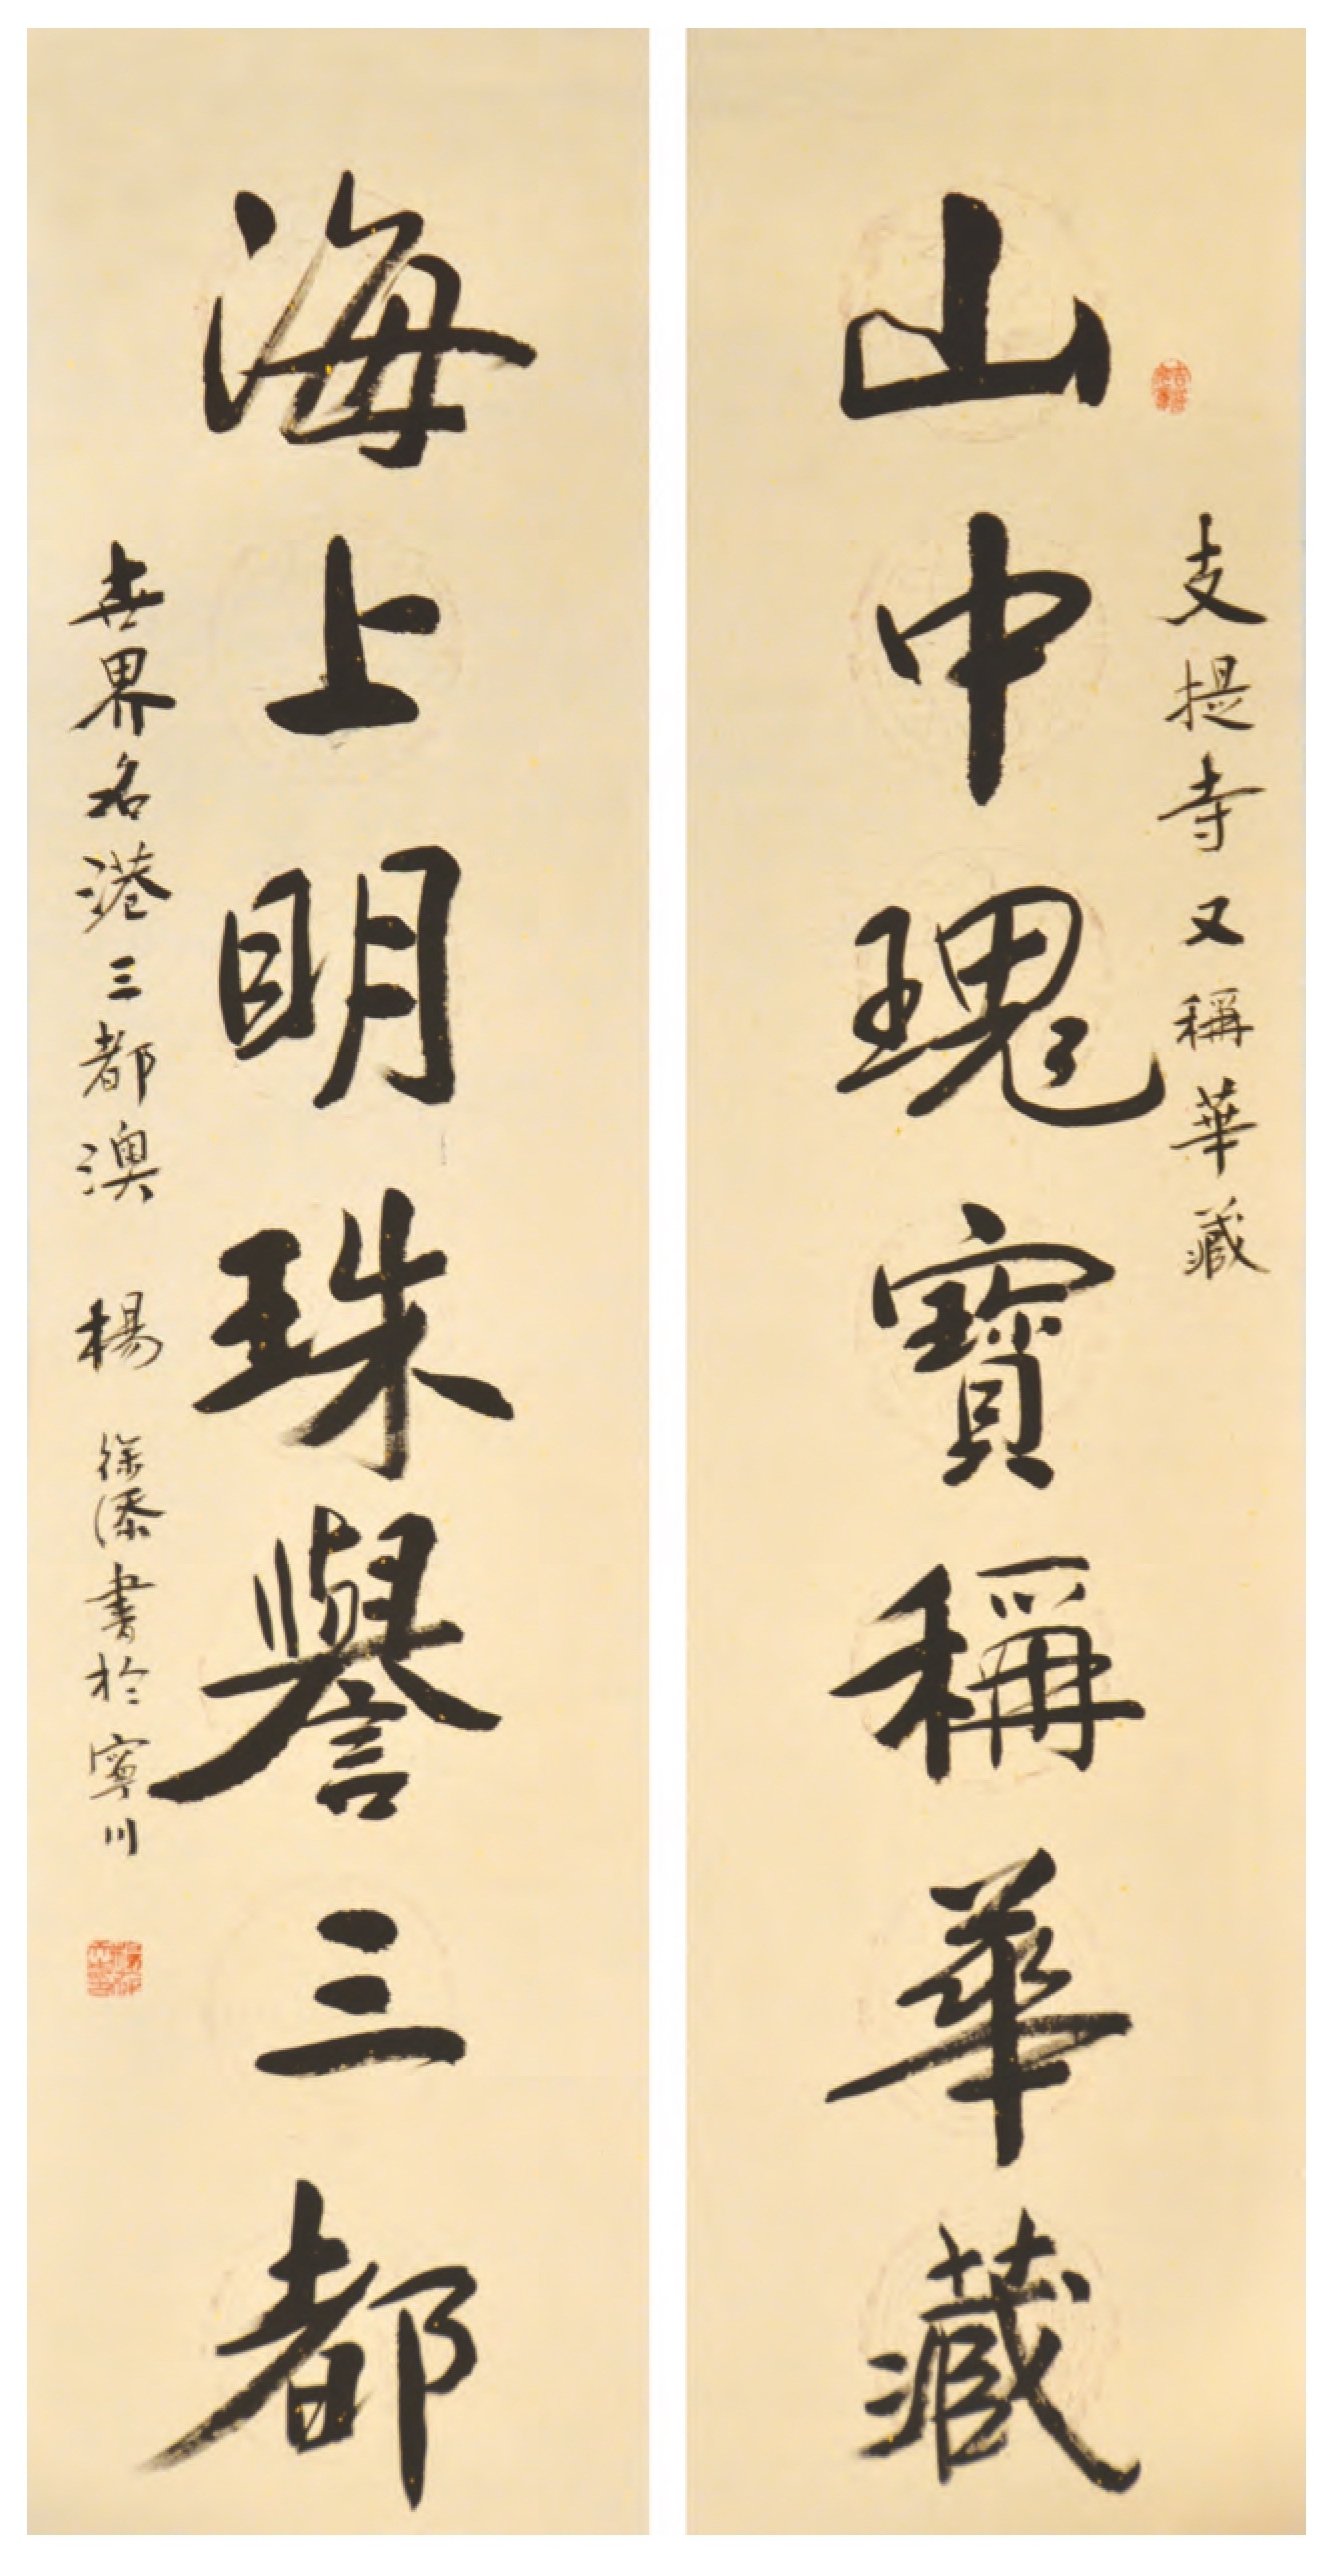 支提寺又稱華藏
山中瑰寶稱華藏
海上明珠譽三都
世界名港三都澳 楊 徐添書於寧川